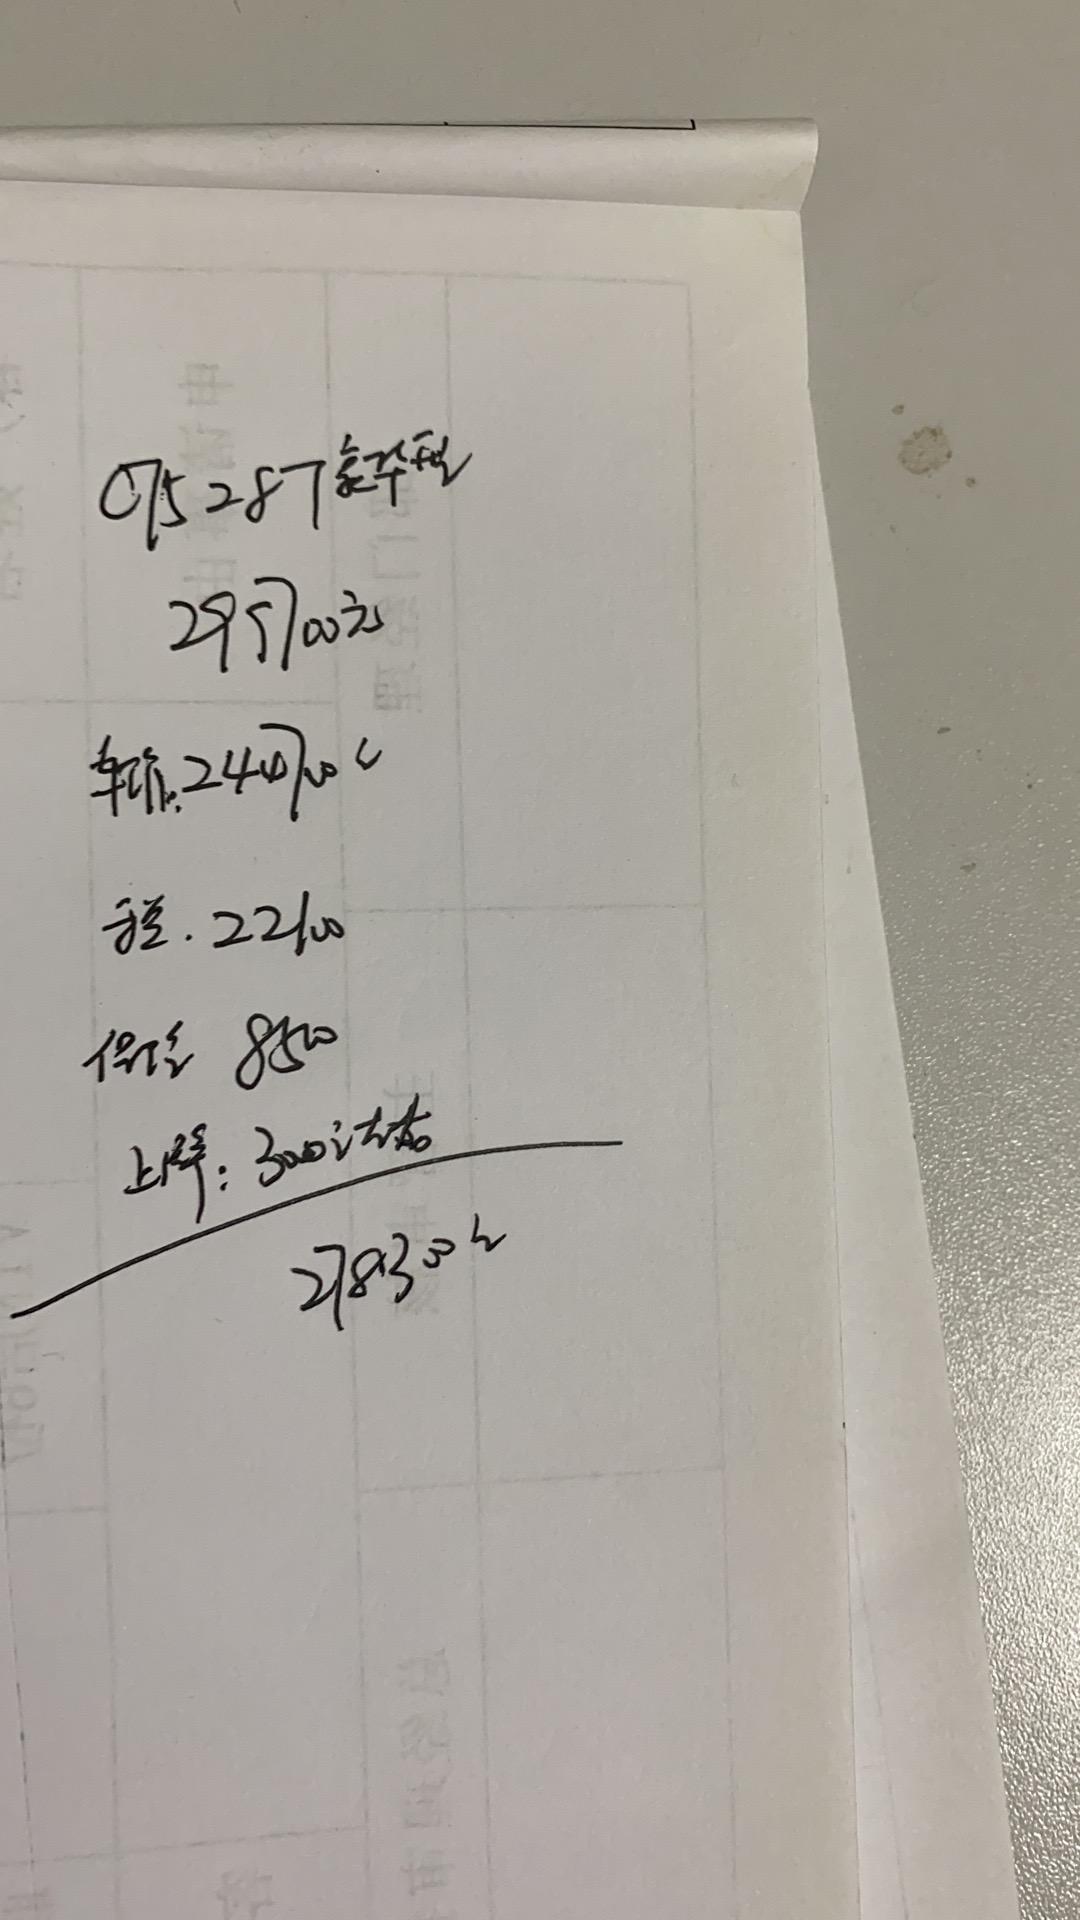 CT5 28T 豪华型
295700元
车价:244700元
税. 22100
保险 8500
上牌:3000元左右
278300元